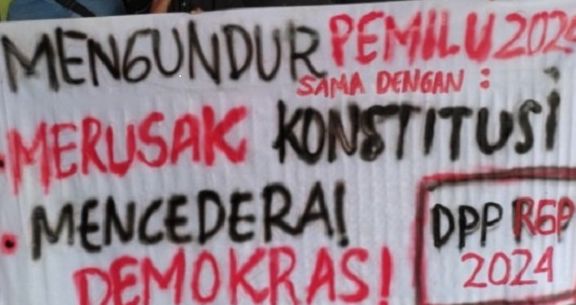 MENGUNDUR PEMILU 2024
SAMA DENGAN :
• MERUSAK KONSTITUSI
• MENCEDERAI
DEMOKRASI
DPP RGP
2024